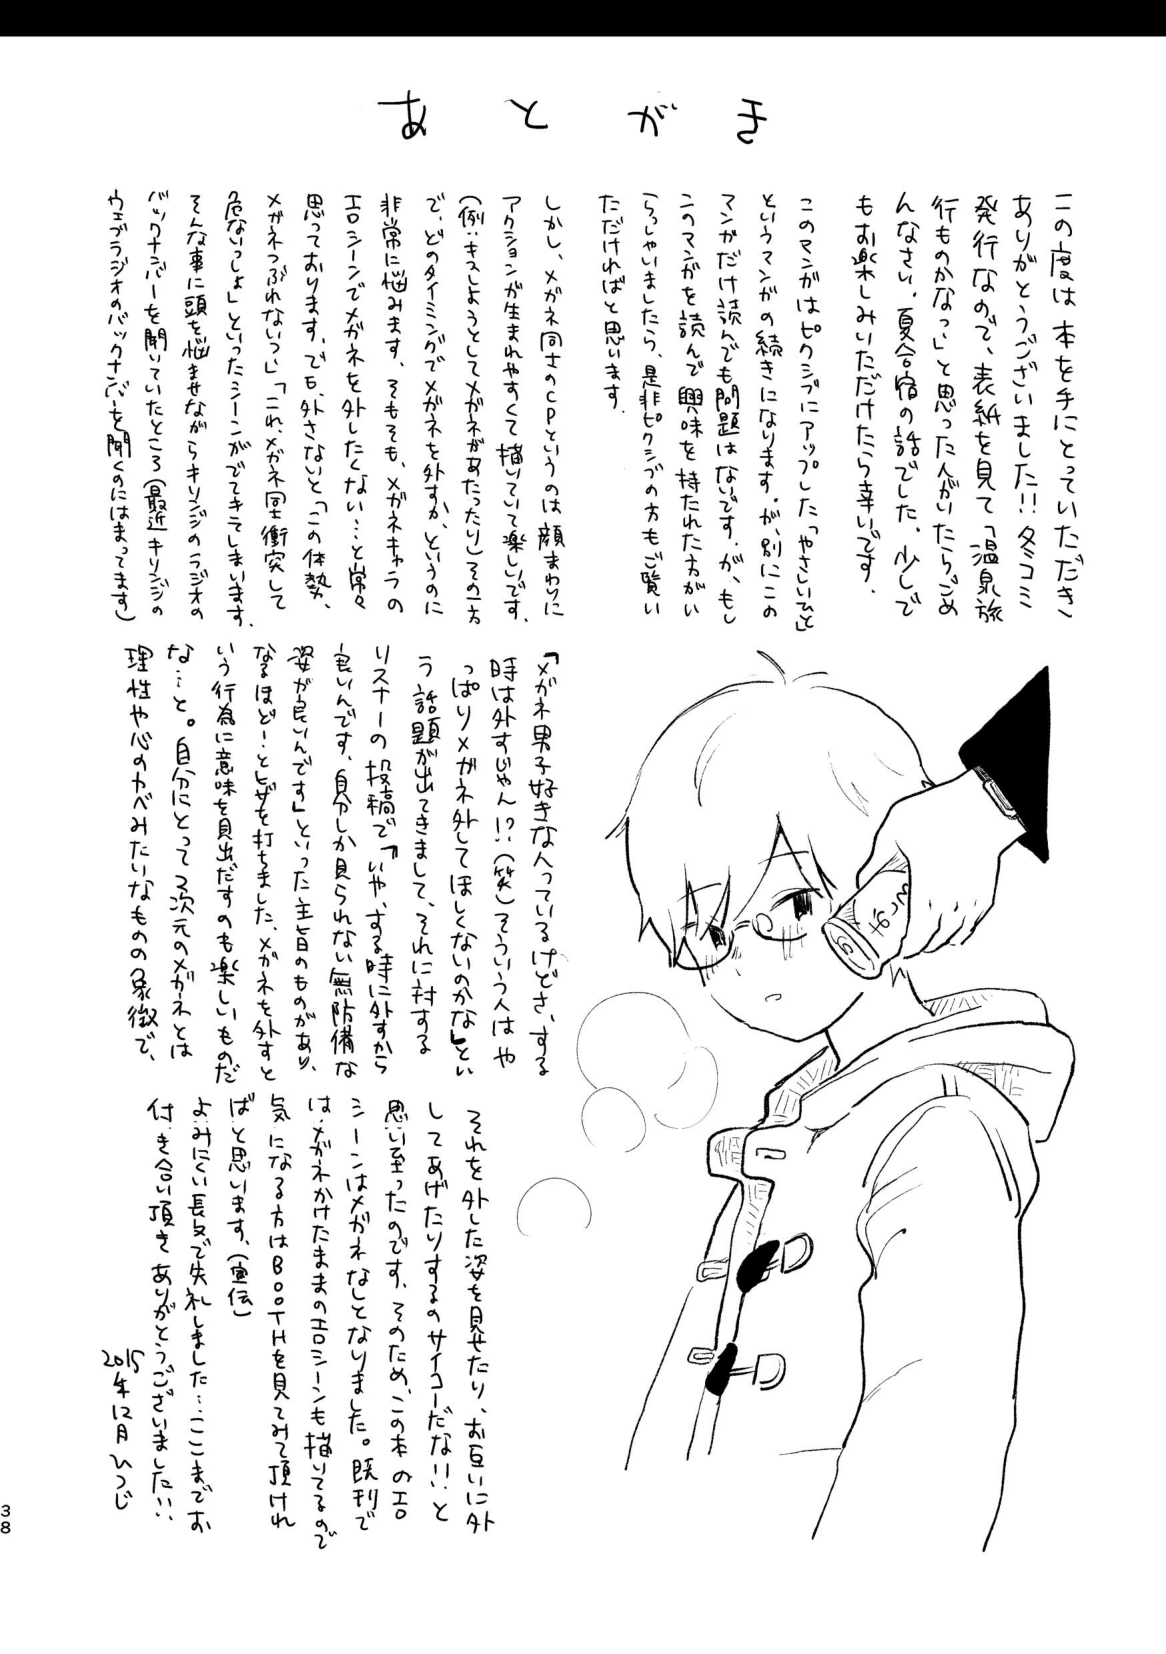 あとがき
この度は本を手にとっていただき
ありがとうございました!!冬コミ
発行なので、表紙を見て「温泉旅
行ものかなっ」と思った人がいたらごめ
んなさい。夏合宿の話でした。少しで
もお楽しみいただけたら幸いです。
このマンガはピクシブにアップした「やさしいひと」
というマンガの続きになります。が、別にこの
マンガだけ読んでも問題はないです。が、もし
このマンガを読んで興味を持たれた方がい
らっしゃいましたら、是非ピクシブの方もご覧い
ただければと思います。
しかし、メガネ同士のCPというのは顔まわりに
アクションが生まれやすくて描いていて楽しいです。
(例:キスしようとしてメガネがあたったり)その一方
で、どのタイミングでメガネを外すか、というのに
非常に悩みます。そもそも、メガネキャラの
エロシーンでメガネを外したくない…と常々
思っております。でも、外さないと「この体勢、
メガネつぶれないっ」「これ、メガネ同士衝突して
危ないっしょ」といったシーンがでてきてしまいます。
そんな事に頭を悩ませながらキリンジのラジオの
バックナンバーを聞いていたところ(最近キリンジの
ウェブラジオのバックナンバーを聞くのにはまってます)
「メガネ男子好きな人っているけどさ、する
時は外すじゃん!?(笑)そういう人はや
っぱりメガネ外してほしくないのかな」とい
う話題が出てきまして、それに対する
リスナーの投稿で『いや、する時に外すから
良いんです、自分しか見られない無防備な
姿が良いんです』といった主旨のものがあり、
なるほど…とヒザを打ちました。メガネを外すと
いう行為に意味を見出だすのも楽しいものだ
な…と。自分にとって2次元のメガネとは
理性や心のカベみたいなものの象徴で、
それを外した姿を見せたり、お互いに外
してあげたりするのサイコーだな!!と
思い至ったのです。そのため、この本のエロ
シーンはメガネなしとなりました。既刊で
はメガネかけたままのエロシーンも描いてるので
気になる方はBOOTHを見てみて頂けれ
ばと思います。(宣伝)
よみにくい長文で失礼しました…ここまでお
付き合い頂きありがとうございました!!
2015年12月 ひつじ
38